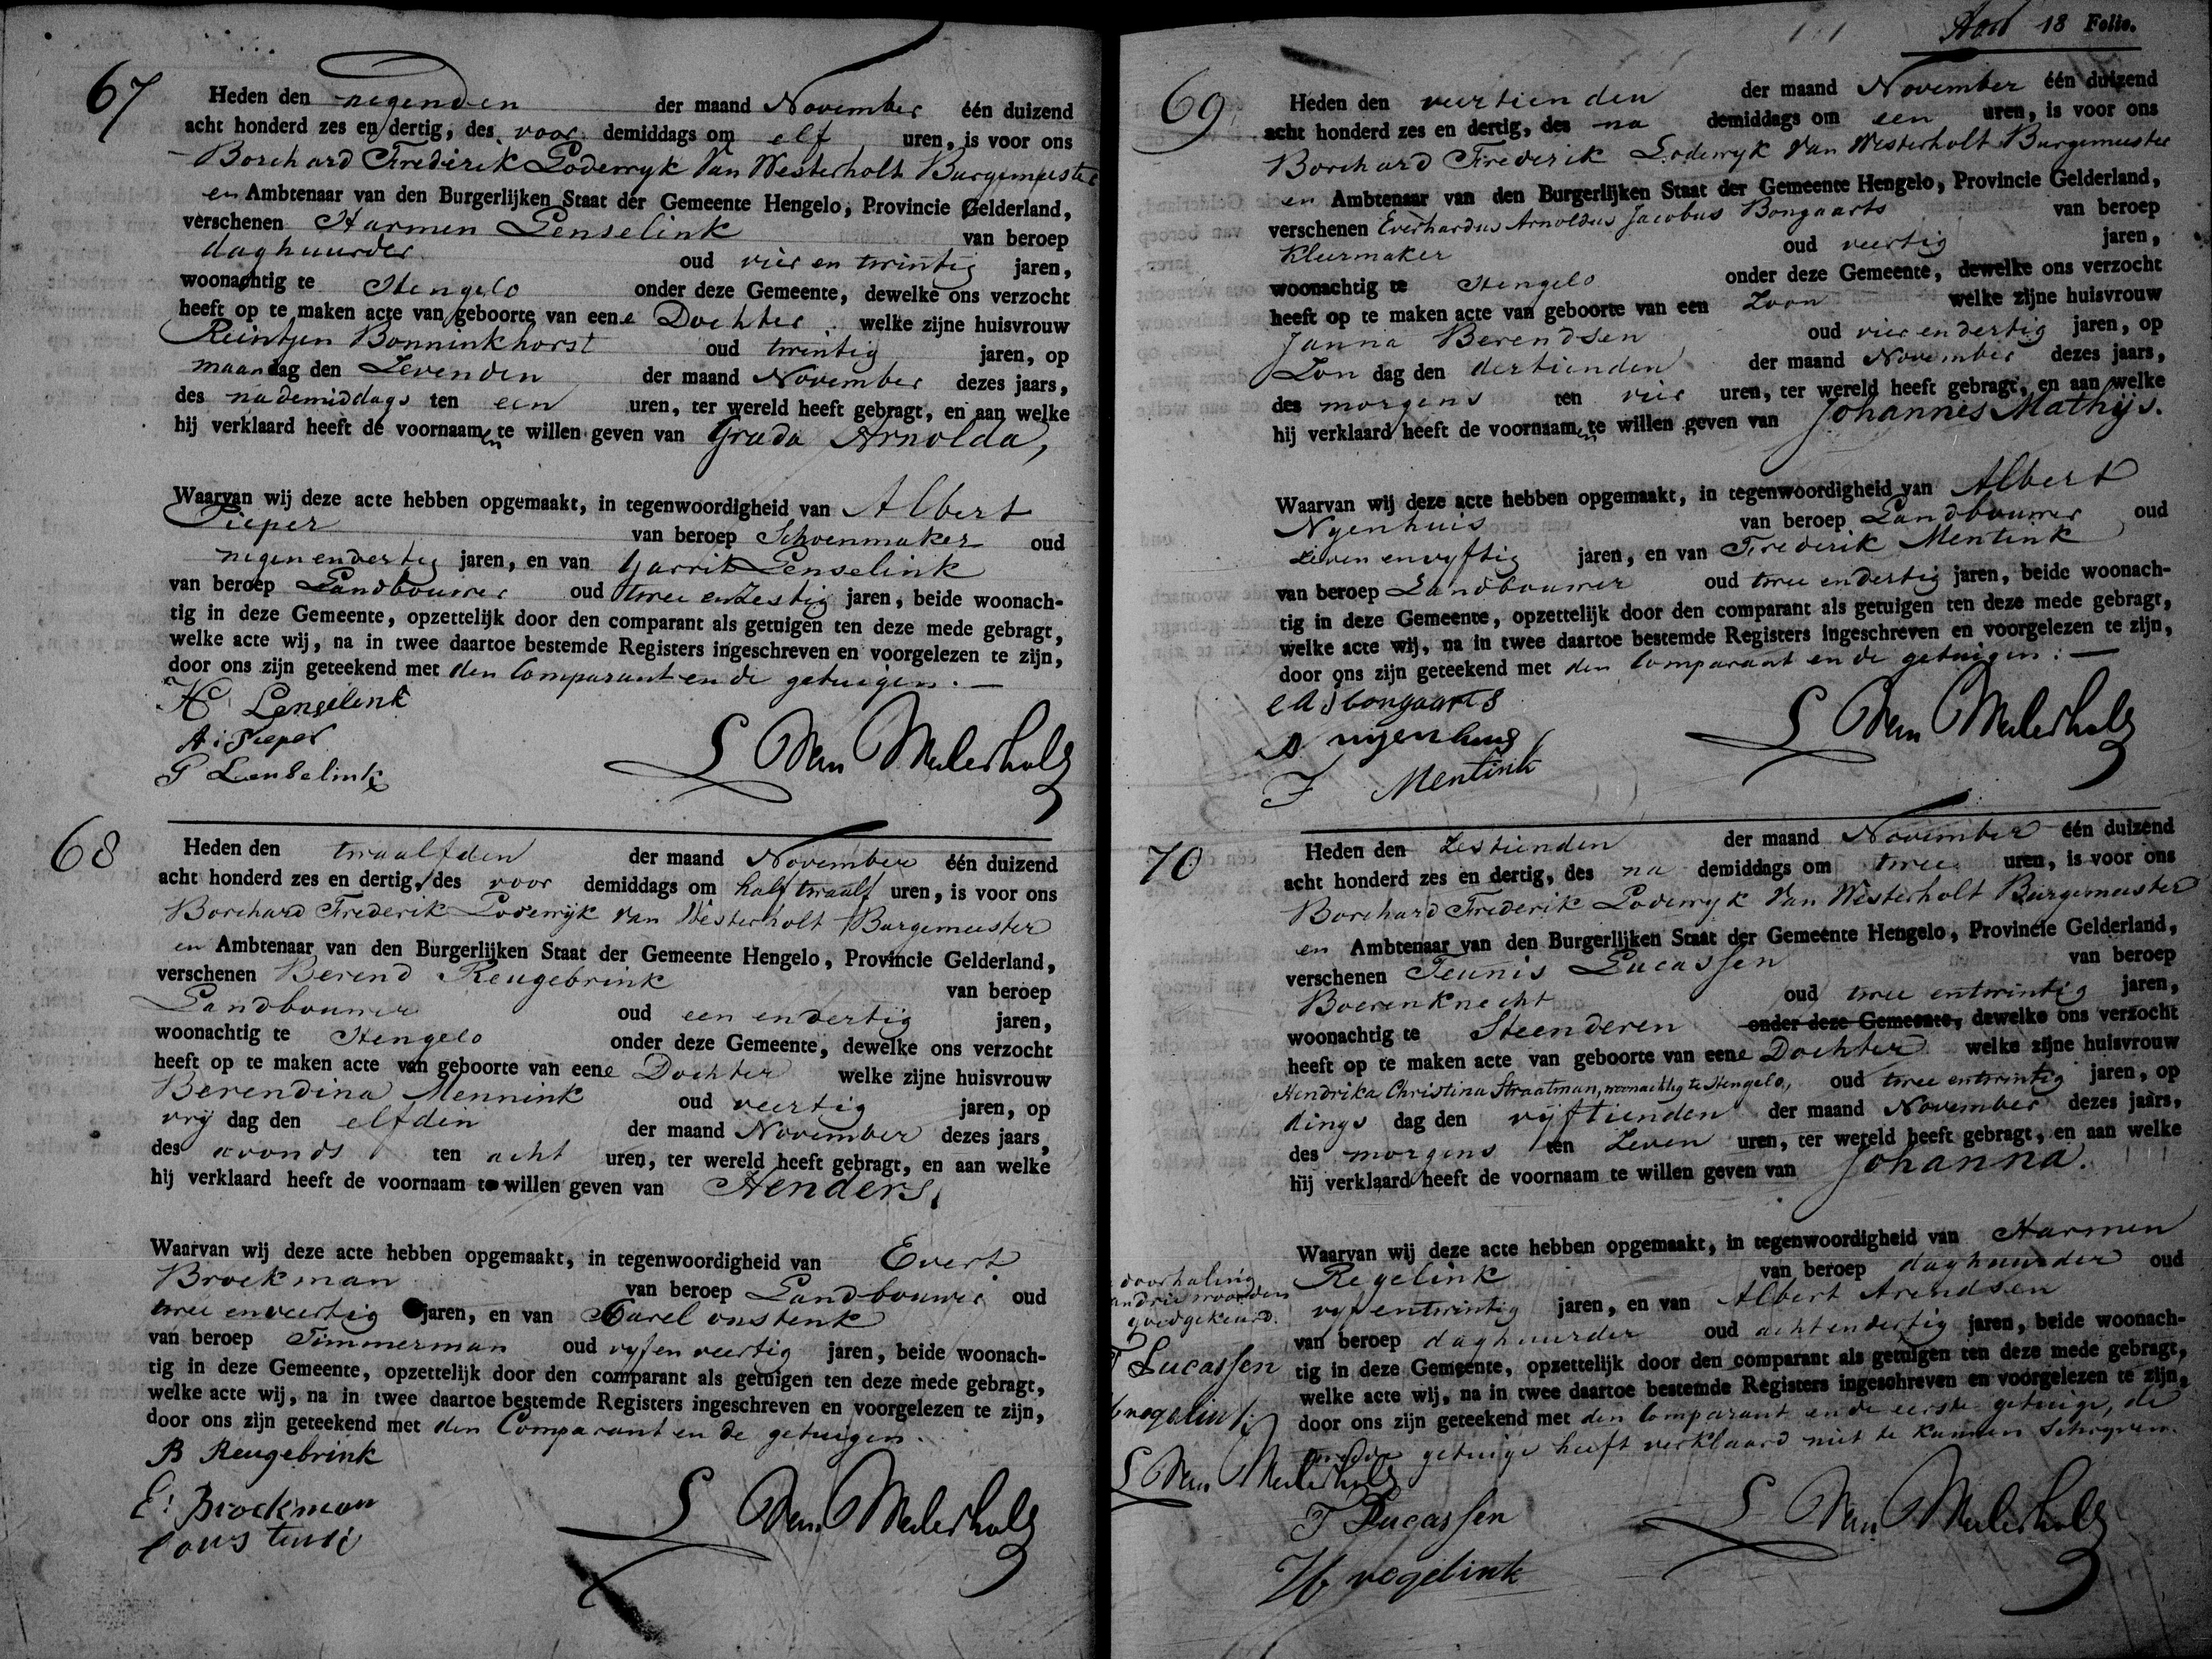 67
Heden den negenden der maand November één duizend
acht honderd zes en dertig, des voor demiddags om elf uren, is voor ons
Borchard Frederik Lodewyk Van Westerholt Burgemeester
en Ambtenaar van den Burgerlijken Staat der Gemeente Hengelo, Provincie Gelderland,
verschenen Harmen Lenselink van beroep
daghuurder oud vier en twintig jaren,
woonachtig te Hengelo onder deze Gemeente, dewelke ons verzocht
heeft op te maken acte van geboorte van eene Dochter welke zijne huisvrouw
Reintjen Bonninkhorst oud twintig jaren, op
maandag den Zevenden der maand November dezes jaars,
des nademiddags ten een uren, ter wereld heeft gebragt, en aan welke
hij verklaard heeft de voornaamen te willen geven van Grada Arnolda,
Waarvan wij deze acte hebben opgemaakt, in tegenwoordigheid van Albert
Pieper van beroep Schoenmaker oud
negen en dertig jaren, en van Garrit Lenselink
van beroep Landbouwer oud twee en Zestig jaren, beide woonach-
tig in deze Gemeente, opzettelijk door den comparant als getuigen ten deze mede gebragt,
welke acte wij, na in twee daartoe bestemde Registers ingeschreven en voorgelezen te zijn,
door ons zijn geteekend met den Comparant en de getuigen.
H Lenselink
A: Pieper
G Lenselink
L Van Westerholt
68
Heden den twaalfden der maand November één duizend
acht honderd zes en dertig, des voor demiddags om half twaalf uren, is voor ons
Borchard Frederik Lodewyk Van Westerholt Burgemeester
en Ambtenaar van den Burgerlijken Staat der Gemeente Hengelo, Provincie Gelderland,
verschenen Berend Reugebrink van beroep
Landbouwer oud een en dertig jaren,
woonachtig te Hengelo onder deze Gemeente, dewelke ons verzocht
heeft op te maken acte van geboorte van eene Dochter welke zijne huisvrouw
Berendina Mennink oud veertig jaren, op
vrij dag den elfden der maand November dezes jaars,
des avonds ten acht uren, ter wereld heeft gebragt, en aan welke
hij verklaard heeft de voornaam te willen geven van Henders,
Waarvan wij deze acte hebben opgemaakt, in tegenwoordigheid van Evert
Broekman van beroep Landbouwer oud
twee en veertig jaren, en van Carel onstenk
van beroep Timmerman oud vyf en veertig jaren, beide woonach-
tig in deze Gemeente, opzettelijk door den comparant als getuigen ten deze mede gebragt,
welke acte wij, na in twee daartoe bestemde Registers ingeschreven en voorgelezen te zijn,
door ons zijn geteekend met den Comparant en de getuigen.
B Reugebrink
E: Broekman
L Van Westerholt
18 Folio.
69
Heden den veertienden der maand November één duizend
acht honderd zes en dertig, des na demiddags om een uren, is voor ons
Borchard Frederik Lodewyk Van Westerholt Burgemeester
en Ambtenaar van den Burgerlijken Staat der Gemeente Hengelo, Provincie Gelderland,
verschenen Everhardus Arnoldus Jacobus Bongaarts van beroep
Kleermaker oud veertig jaren,
woonachtig te Hengelo onder deze Gemeente, dewelke ons verzocht
heeft op te maken acte van geboorte van een Zoon welke zijne huisvrouw
Janna Berendsen oud vier en dertig jaren, op
Zon dag den dertienden der maand November dezes jaars,
des morgens ten vier uren, ter wereld heeft gebragt, en aan welke
hij verklaard heeft de voornaamen te willen geven van Johannes Mathijs.
Waarvan wij deze acte hebben opgemaakt, in tegenwoordigheid van Albert
Nyenhuis van beroep Landbouwer oud
Zeven en vyftig jaren, en van Frederik Mentink
van beroep Landbouwer oud twee en dertig jaren, beide woonach-
tig in deze Gemeente, opzettelijk door den comparant als getuigen ten deze mede gebragt,
welke acte wij, na in twee daartoe bestemde Registers ingeschreven en voorgelezen te zijn,
door ons zijn geteekend met den Comparant en de getuigen:
e a j bongaarts
A nyenhuis
F Mentink
L Van Westerholt
70
Heden den Zestienden der maand November één duizend
acht honderd zes en dertig, des na demiddags om twee uren, is voor ons
Borchard Frederik Lodewyk Van Westerholt Burgemeester
en Ambtenaar van den Burgerlijken Staat der Gemeente Hengelo, Provincie Gelderland,
verschenen Teunis Lucassen van beroep
Boerenknecht oud twee en twintig jaren,
woonachtig te Steenderen onder deze Gemeente, dewelke ons verzocht
heeft op te maken acte van geboorte van eene Dochter welke zijne huisvrouw
Hendrika Christina Straatman, woonachtig te Hengelo, oud twee en twintig jaren, op
dings dag den vijftienden der maand November dezes jaars,
des morgens ten Zeven uren, ter wereld heeft gebragt, en aan welke
hij verklaard heeft de voornaam te willen geven van Johanna.
Waarvan wij deze acte hebben opgemaakt, in tegenwoordigheid van Harmen
Regelink van beroep daghuurder oud
vyf en twintig jaren, en van Albert Arendsen
van beroep daghuurder oud acht en dertig jaren, beide woonach-
tig in deze Gemeente, opzettelijk door den comparant als getuigen ten deze mede gebragt,
welke acte wij, na in twee daartoe bestemde Registers ingeschreven en voorgelezen te zijn,
door ons zijn geteekend met den Comparant en de eerste getuige, de
tweede getuige heeft verklaard niet te kunnen Schryven.
doorhaling
van drie woorden
goedgekeurd.
T Lucassen
H regelink
L Van Westerholt
T Lucassen
H regelink
L Van Westerholt